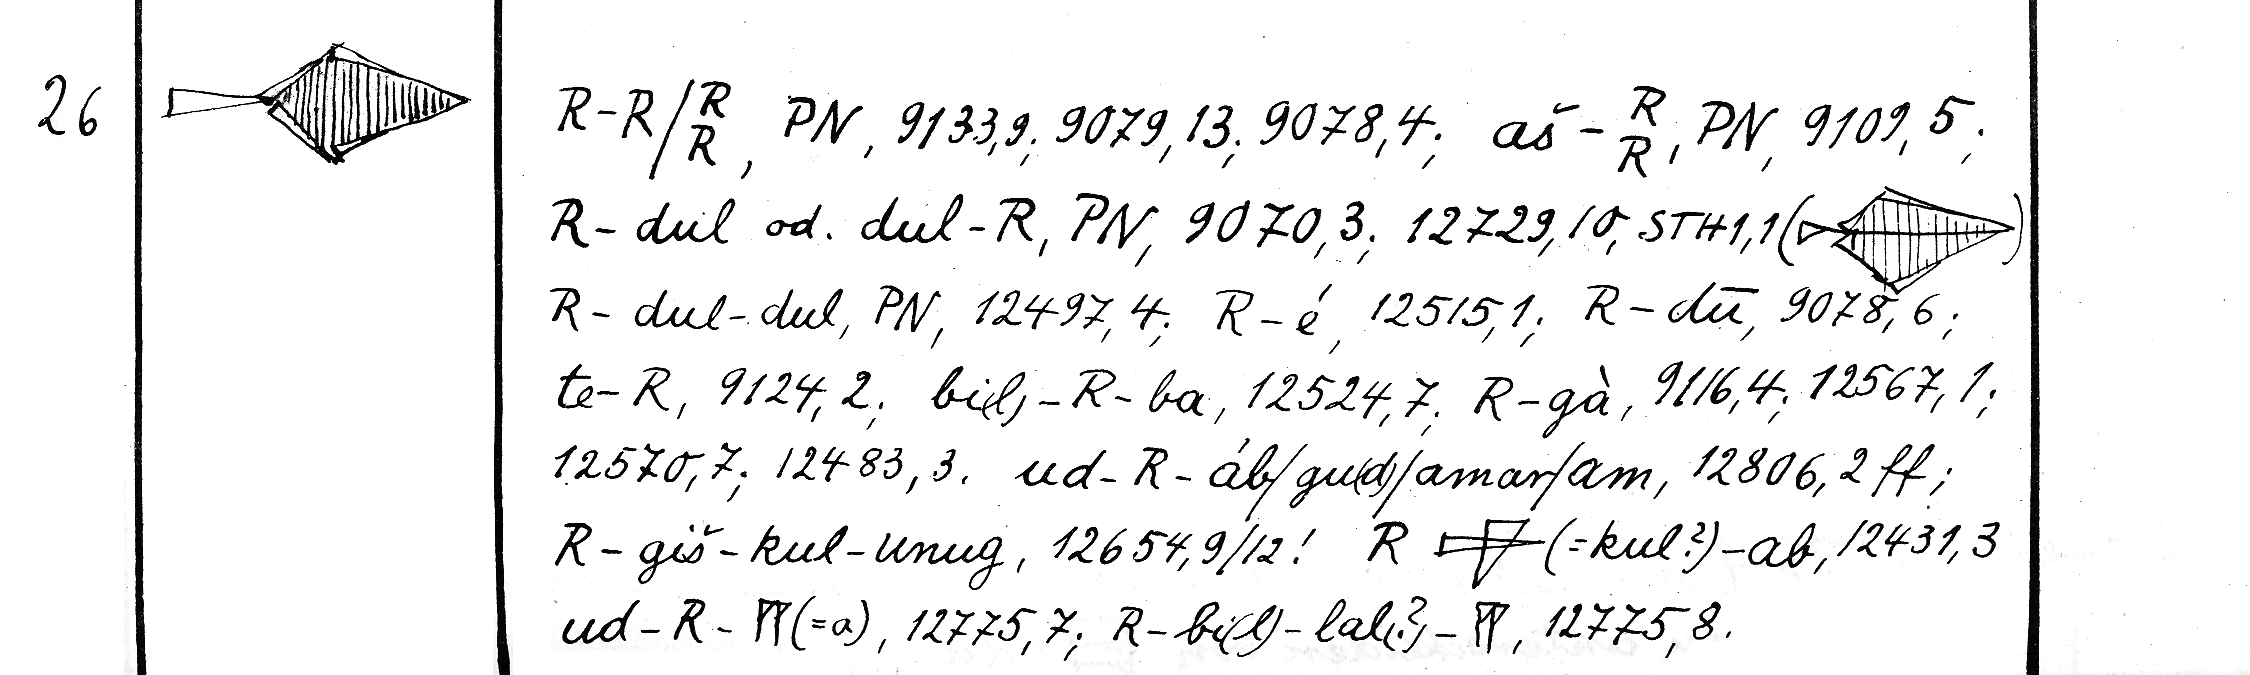 26 R-R/R/R, PN, 9133,9; 9079,13; 9078,4; aš-R/R, PN, 9109,5;
R-dul od. dul-R, PN, 9070,3; 12729,10; STH1,1 ( )
R-dul-dul, PN, 12497,4; R-é, 12515,1; R-dū, 9078,6;
te-R, 9124,2; bi(l)-R-ba, 12524,7; R-gà, 9116,4; 12567,1;
12570,7; 12483,3. ud-R-áb/gu(d)/amar/am, 12806,2ff;
R-giš-kul-unug, 12654,9/12! R (=kul?)-ab, 12431,3
ud-R- (=a), 12775,7; R-bi(l)-lal(?)- , 12775,8.